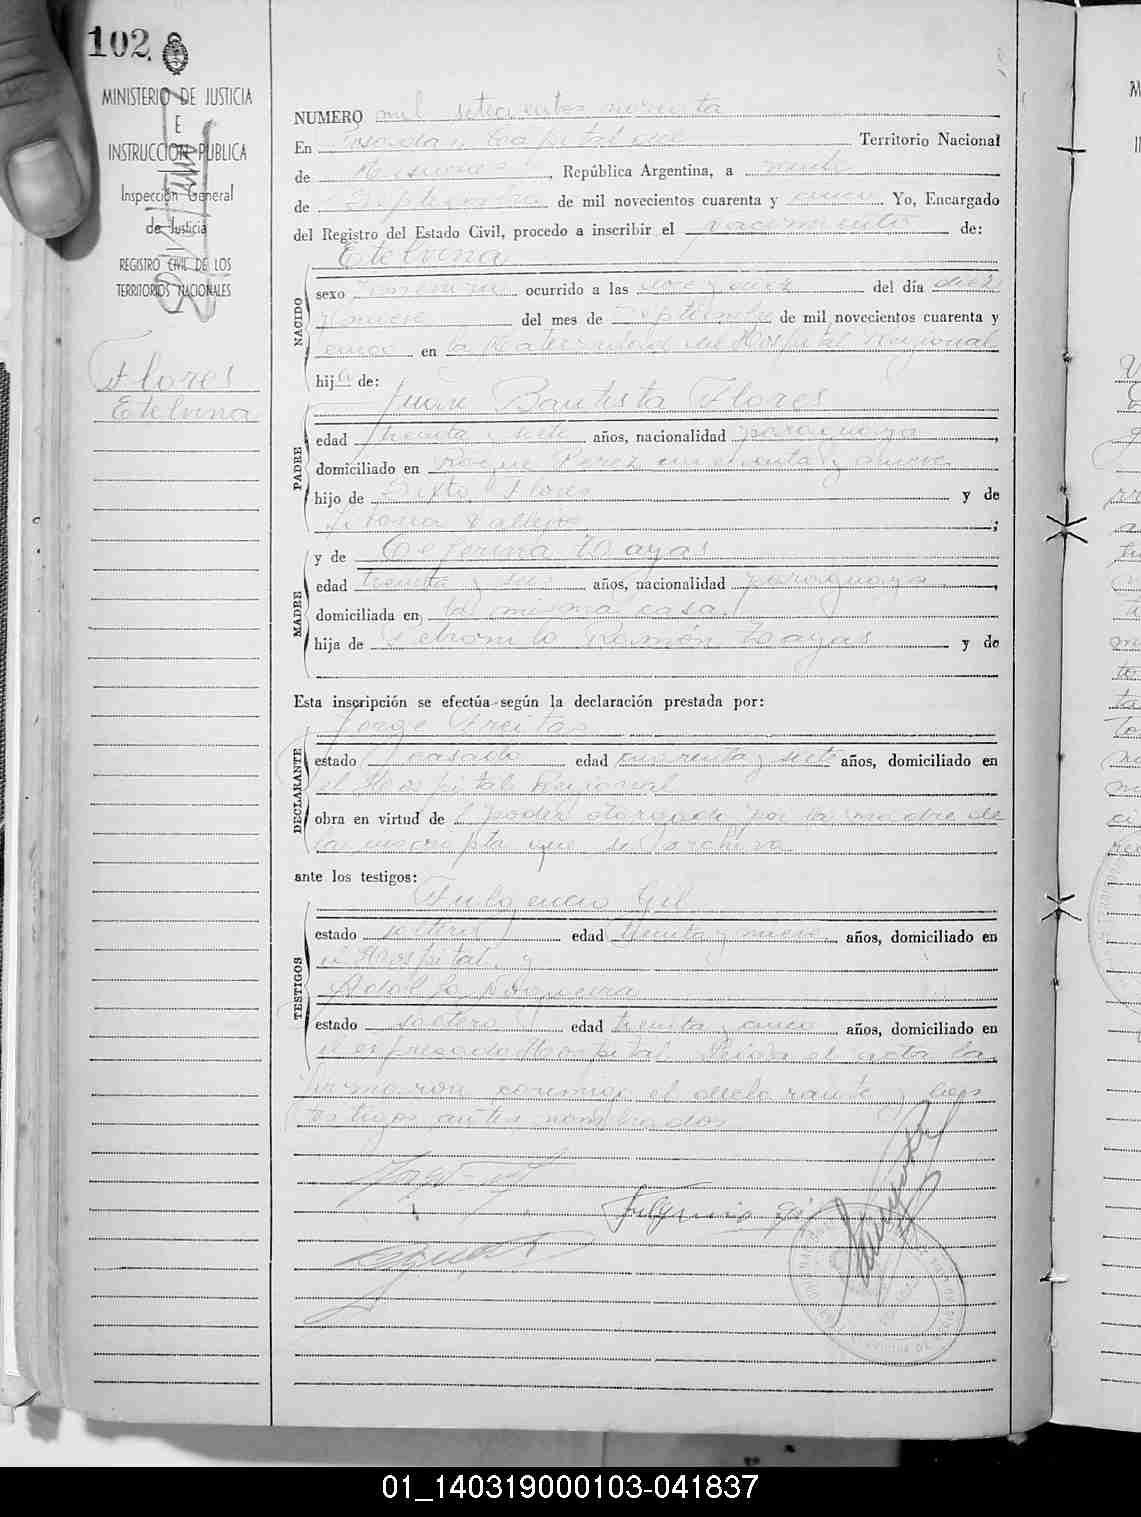 102
MINISTERIO DE JUSTICIA
E
INSTRUCCION PUBLICA
Inspección General
de Justicia
REGISTRO CIVIL DE LOS
TERRITORIOS NACIONALES
Flores
Etelvina
NUMERO mil setecientos noventa
En Posadas, Capital del Territorio Nacional
de Misiones, República Argentina, a veinte
de Septiembre de mil novecientos cuarenta y cinco. Yo, Encargado
del Registro del Estado Civil, procedo a inscribir el nacimiento de:
Etelvina
NACIDO
sexo femenino ocurrido a las doce y diez del día diez
y nueve del mes de Septiembre de mil novecientos cuarenta y
cinco en la Maternidad del Hospital Regional
hija de:
Juan Bautista Flores
PADRE
edad treinta y siete años, nacionalidad paraguaya,
domiciliado en Roque Perez cincuenta y nueve
hijo de Sixto Flores y de
Vallejos;
y de Ceferina Zayas
MADRE
edad treinta y seis años, nacionalidad paraguaya,
domiciliada en la misma casa.
hija de Petronilo Ramón Zayas y de
Esta inscripción se efectúa según la declaración prestada por:
Jorge Freitas
DECLARANTE
estado casado edad cuarenta y siete años, domiciliado en
el Hospital Regional
obra en virtud de poder otorgado por la madre de
la inscripta que se archiva
ante los testigos:
Fulgencio Gil
TESTIGOS
estado soltero edad treinta y nueve años, domiciliado en
el Hospital y
Adolfo
estado soltero edad treinta y cinco años, domiciliado en
el expresado Hospital. Leida el acta la
firmaron conmigo el declarante y los
testigos antes nombrados
Fulgencio Gil
01_140319000103-041837